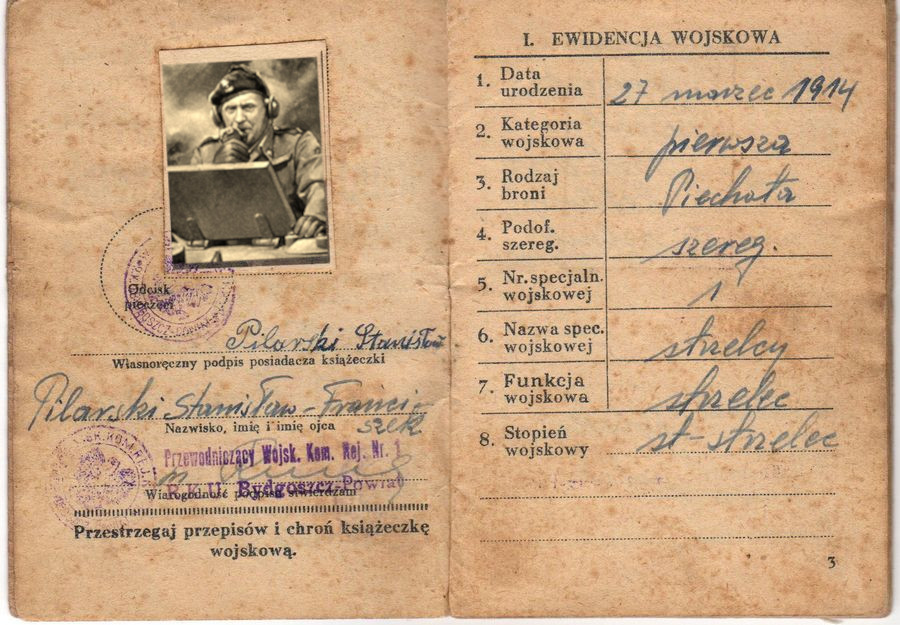 Odcisk
pieczęci
Pilarski Stanisław
Własnoręczny podpis posiadacza książeczki
Pilarski Stanisław-Franci-
szek
Nazwisko, imię i imię ojca
Przewodniczący Wojsk. Kom. Rej. Nr. 1
R.K.U. Bydgoszcz-Powiat
Wiarogodność podpisu stwierdzam
Przestrzegaj przepisów i chroń książeczkę
wojskową.
I. EWIDENCJA WOJSKOWA
1. Data
urodzenia
27 marzec 1914
2. Kategoria
wojskowa
pierwsza
3. Rodzaj
broni
Piechota
4. Podof.
szereg.
szereg.
5. Nr. specjaln.
wojskowej
1
6. Nazwa spec.
wojskowej
strzelcy
7. Funkcja
wojskowa
strzelec
8. Stopień
wojskowy
st-strzelec
3